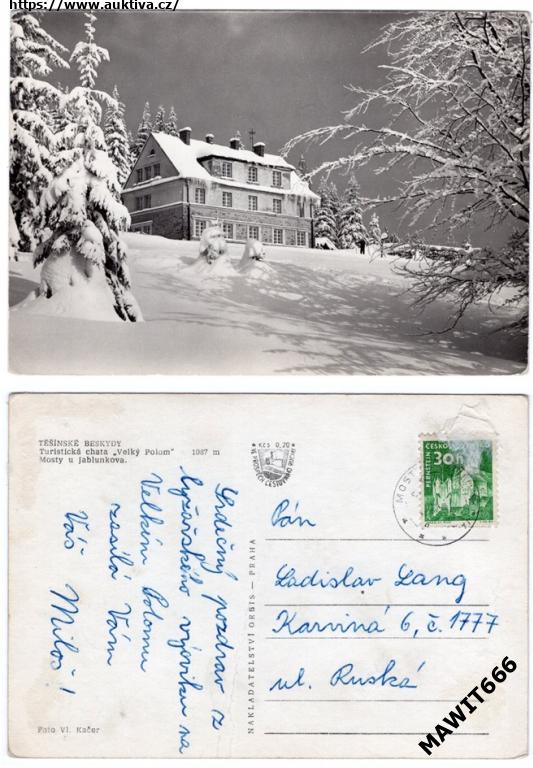 https://www.auktiva.cz/
TĚŠÍNSKÉ BESKYDY
Turistická chata „Velký Polom" - 1067 m
Mosty u Jablunkova.
KČS 0,20
Srdečný pozdrav z
lyžařského výcviku na
Velkém Polomu
zasílá Vám
Váš Miloš!
Foto Vl. Kačer
NAKLADATELSTVÍ ORBIS — PRAHA
PERNŠTEJN
30h
MOST
Pán
Ladislav Lang
Karviná 6, č. 1777
ul. Ruská
MAWIT666